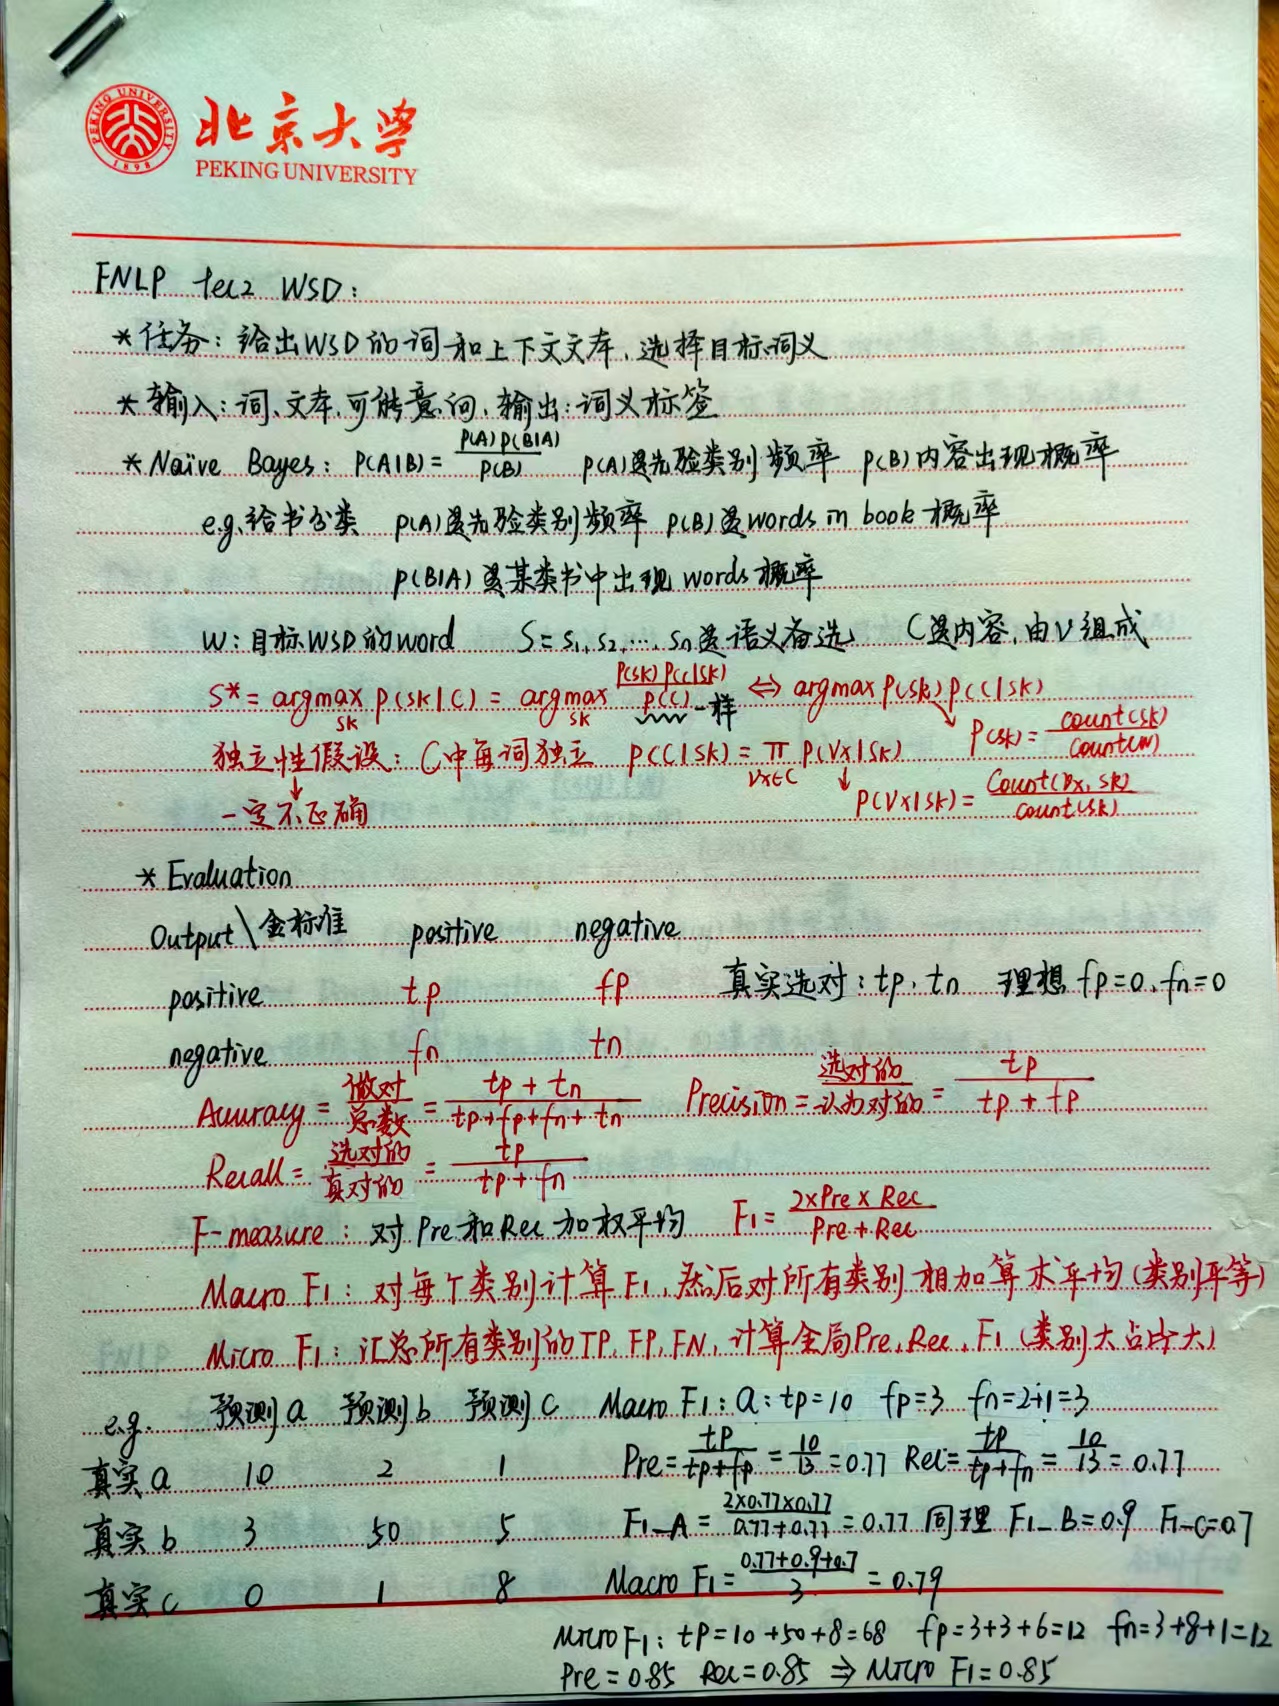 PEKING UNIVERSITY
1898
北京大学
PEKING UNIVERSITY
FNLP lec2 WSD:
*任务: 给出WSD的词和上下文文本, 选择目标词义
*输入: 词、文本、可能意间, 输出: 词义标签
*Naïve Bayes: P(A|B) = P(A)P(B|A)/P(B) P(A)是先验类别频率 P(B)内容出现概率
e.g.给书分类 P(A)是先验类别频率 P(B)是words in book概率
P(B|A)是某类书中出现words概率
W: 目标WSD的word S=s1,s2,…,sn是语义备选 C是内容,由V组成
S* = argmax_sk P(sk|C) = argmax_sk P(sk)P(C|sk)/P(C) 一样 ⇔ argmax P(sk)P(C|sk)
P(sk) = count(sk)/count(w)
独立性假设: C中每词独立 P(C|sk) = ∏_{Vx∈C} P(Vx|sk)
↓ 一定不正确
↓ P(Vx|sk) = Count(Vx,sk)/count(sk)
*Evaluation
Output\金标准 positive negative
positive tp fp 真实选对: tp, tn 理想 fp=0, fn=0
negative fn tn
Accuracy = 做对/总数 = tp+tn/tp+fp+fn+tn Precision = 选对的/认为对的 = tp/tp+fp
Recall = 选对的/真对的 = tp/tp+fn
F-measure: 对Pre和Rec加权平均 F1 = 2×Pre×Rec/Pre+Rec
Macro F1: 对每个类别计算F1, 然后对所有类别相加算术平均(类别平等)
Micro F1: 汇总所有类别的TP, FP, FN, 计算全局Pre, Rec, F1 (类别大占比大)
e.g. 预测a 预测b 预测c Macro F1: a: tp=10 fp=3 fn=2+1=3
真实a 10 2 1 Pre = tp/tp+fp = 10/13 = 0.77 Rec = tp/tp+fn = 10/13 = 0.77
真实b 3 50 5 F1_A = 2×0.77×0.77/0.77+0.77 = 0.77 同理 F1_B=0.9 F1_C=0.7
真实c 0 1 8 Macro F1 = 0.77+0.9+0.7/3 = 0.79
Micro F1: tp=10+50+8=68 fp=3+3+6=12 fn=3+8+1=12
Pre=0.85 Rec=0.85 ⇒ Micro F1=0.85